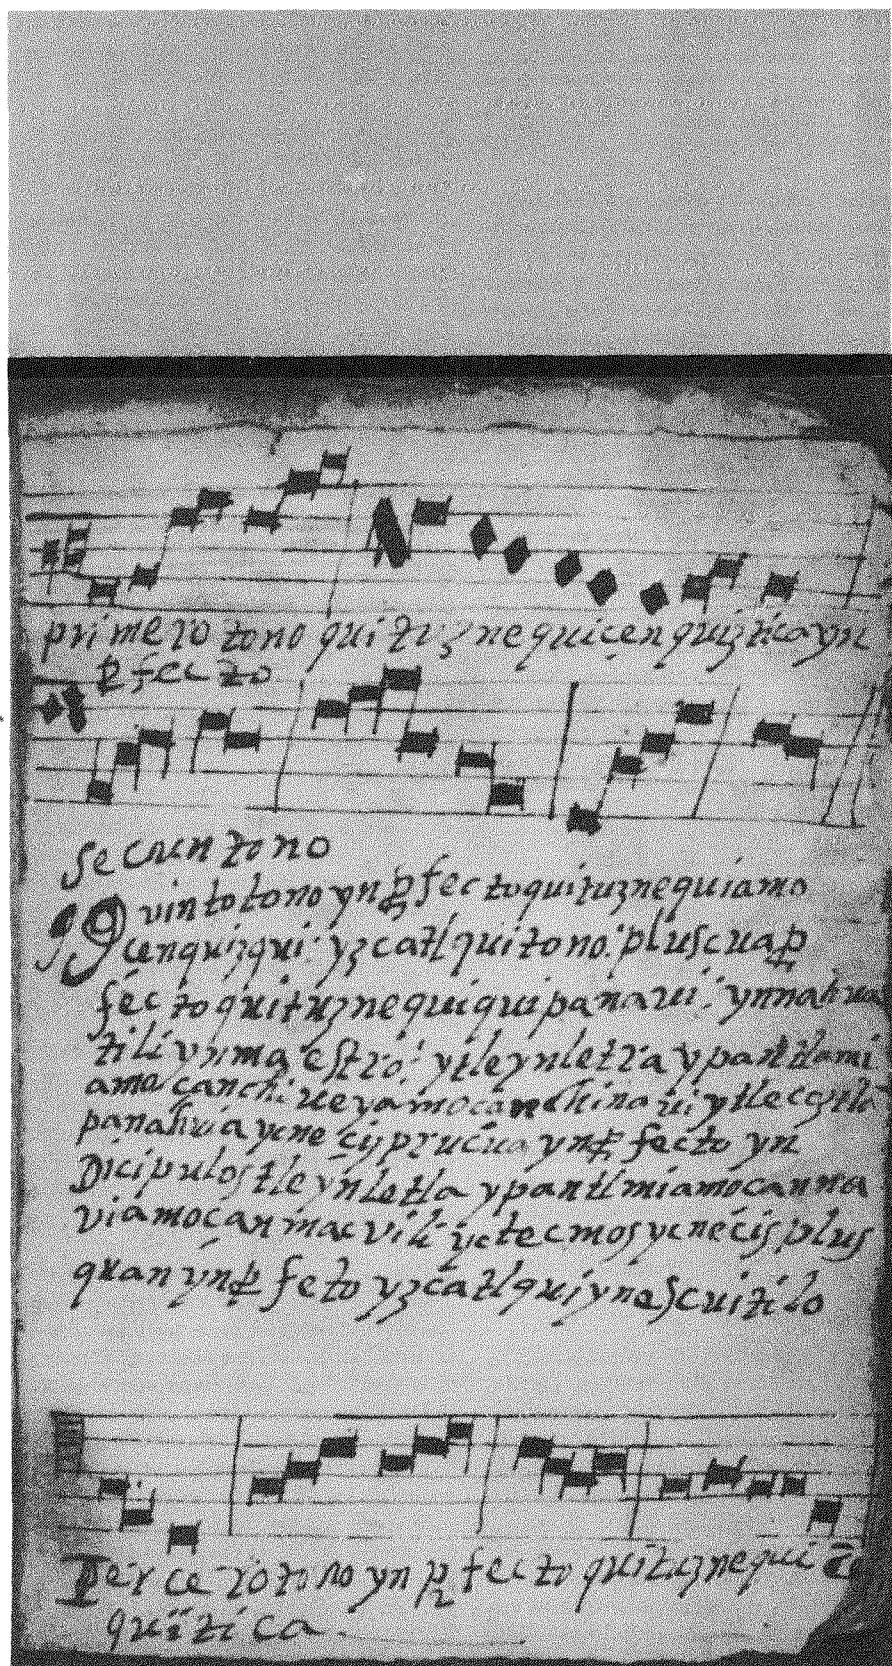 primero tono quituznequi cenquiztica yn
ꝑfecto
Secuntono
Quinto tono ynꝑfecto quituznequi amo
cenquizqui: yzcatlqui tono: pluscuaꝑ
fécto quituznequi quipanavi: ynnahua
tili yn maestro: ytleynletra ypan
amo çan chi
panahvia yc neçi prucua ynꝑfecto yn
Dicipulos tleynletla ypan tlmiamo canna
viamoçan macvili yc tecmos ycneçis plus
quan ynꝑfeto yzcatlqui ynescuitilo
Tercero tono ynꝑfecto quituznequi
quitica